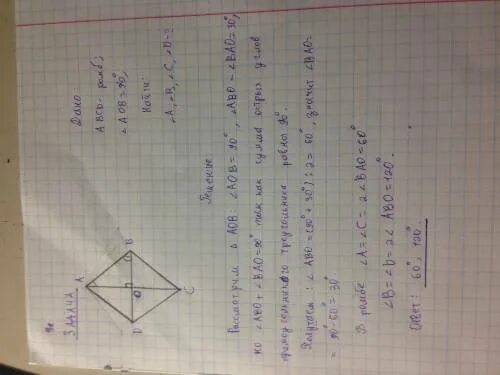 ЗАДАЧА
A
B
D
O
C
Дано
ABCD - ромб;
∠AOB = 90°,
Найти:
∠A, ∠B, ∠C, ∠D = ?
Решение.
Рассмотрим Δ AOB. ∠AOB = 90°, ∠ABO - ∠BAO = 30°,
но ∠ABO + ∠BAO = 90° так как сумма острых углов
прямоугольного треугольника равна 90°.
Получаем: ∠ABO = (90° + 30°) : 2 = 60°, значит ∠BAO =
= 90° - 60° = 30°
В ромбе ∠A = ∠C = 2∠BAO = 60°
∠B = ∠D = 2∠ABO = 120°.
Ответ: 60°, 120°.